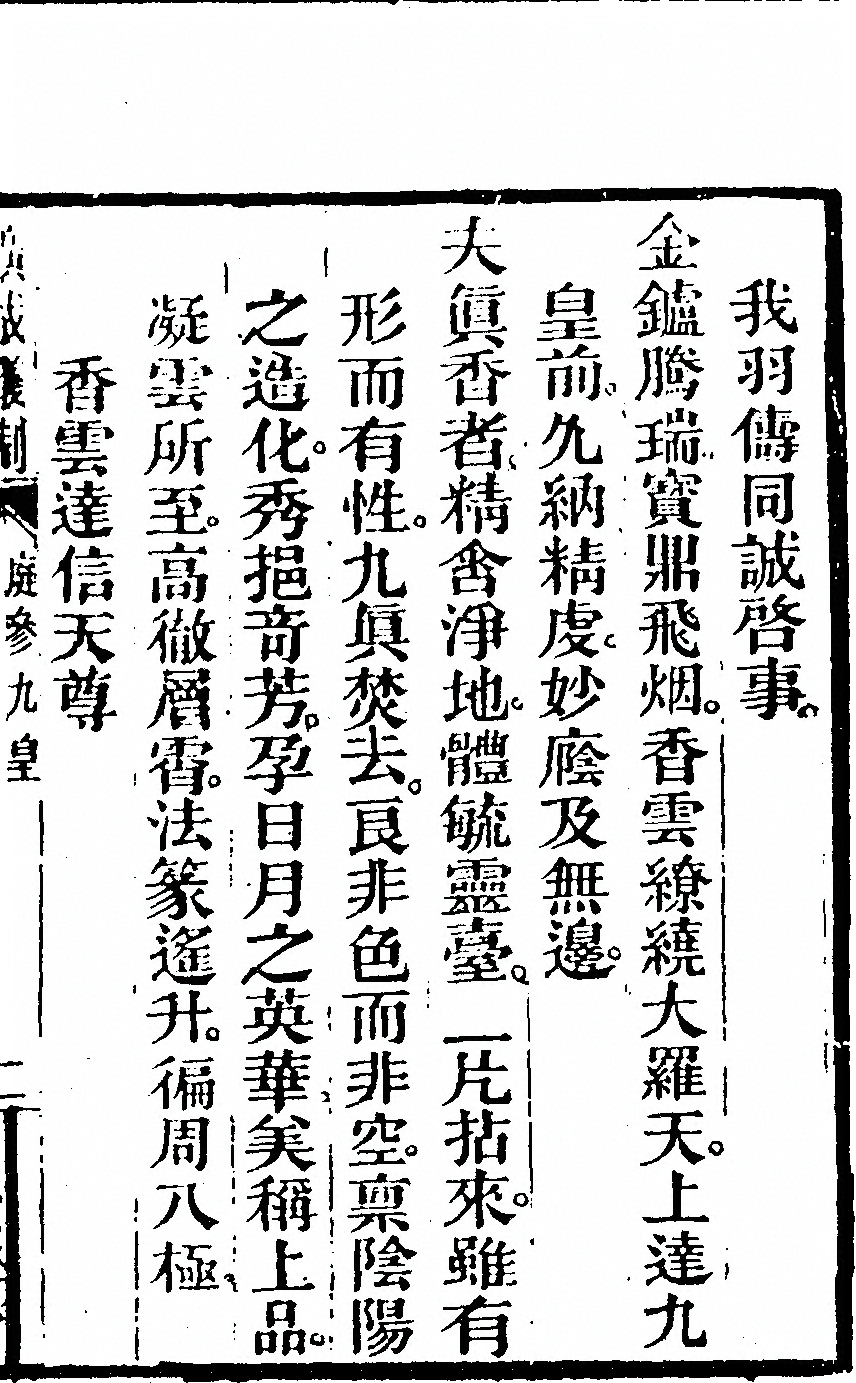 我羽儔同誠啓事。
金鑪騰瑞寳鼎飛烟。香雲繚繞大羅天。上達九
皇前。允納精虔。妙廕及無邊。
夫眞香者、精含淨地。體毓靈臺。一片拈來。雖有
形而有性。九眞焚去。良非色而非空。禀陰陽
之造化。秀挹奇芳。孕日月之英華、美稱上品。
凝雲所至。高徹層霄。法篆遙升。徧周八極、
香雲達信天尊
廣成儀制 庭參九皇 二